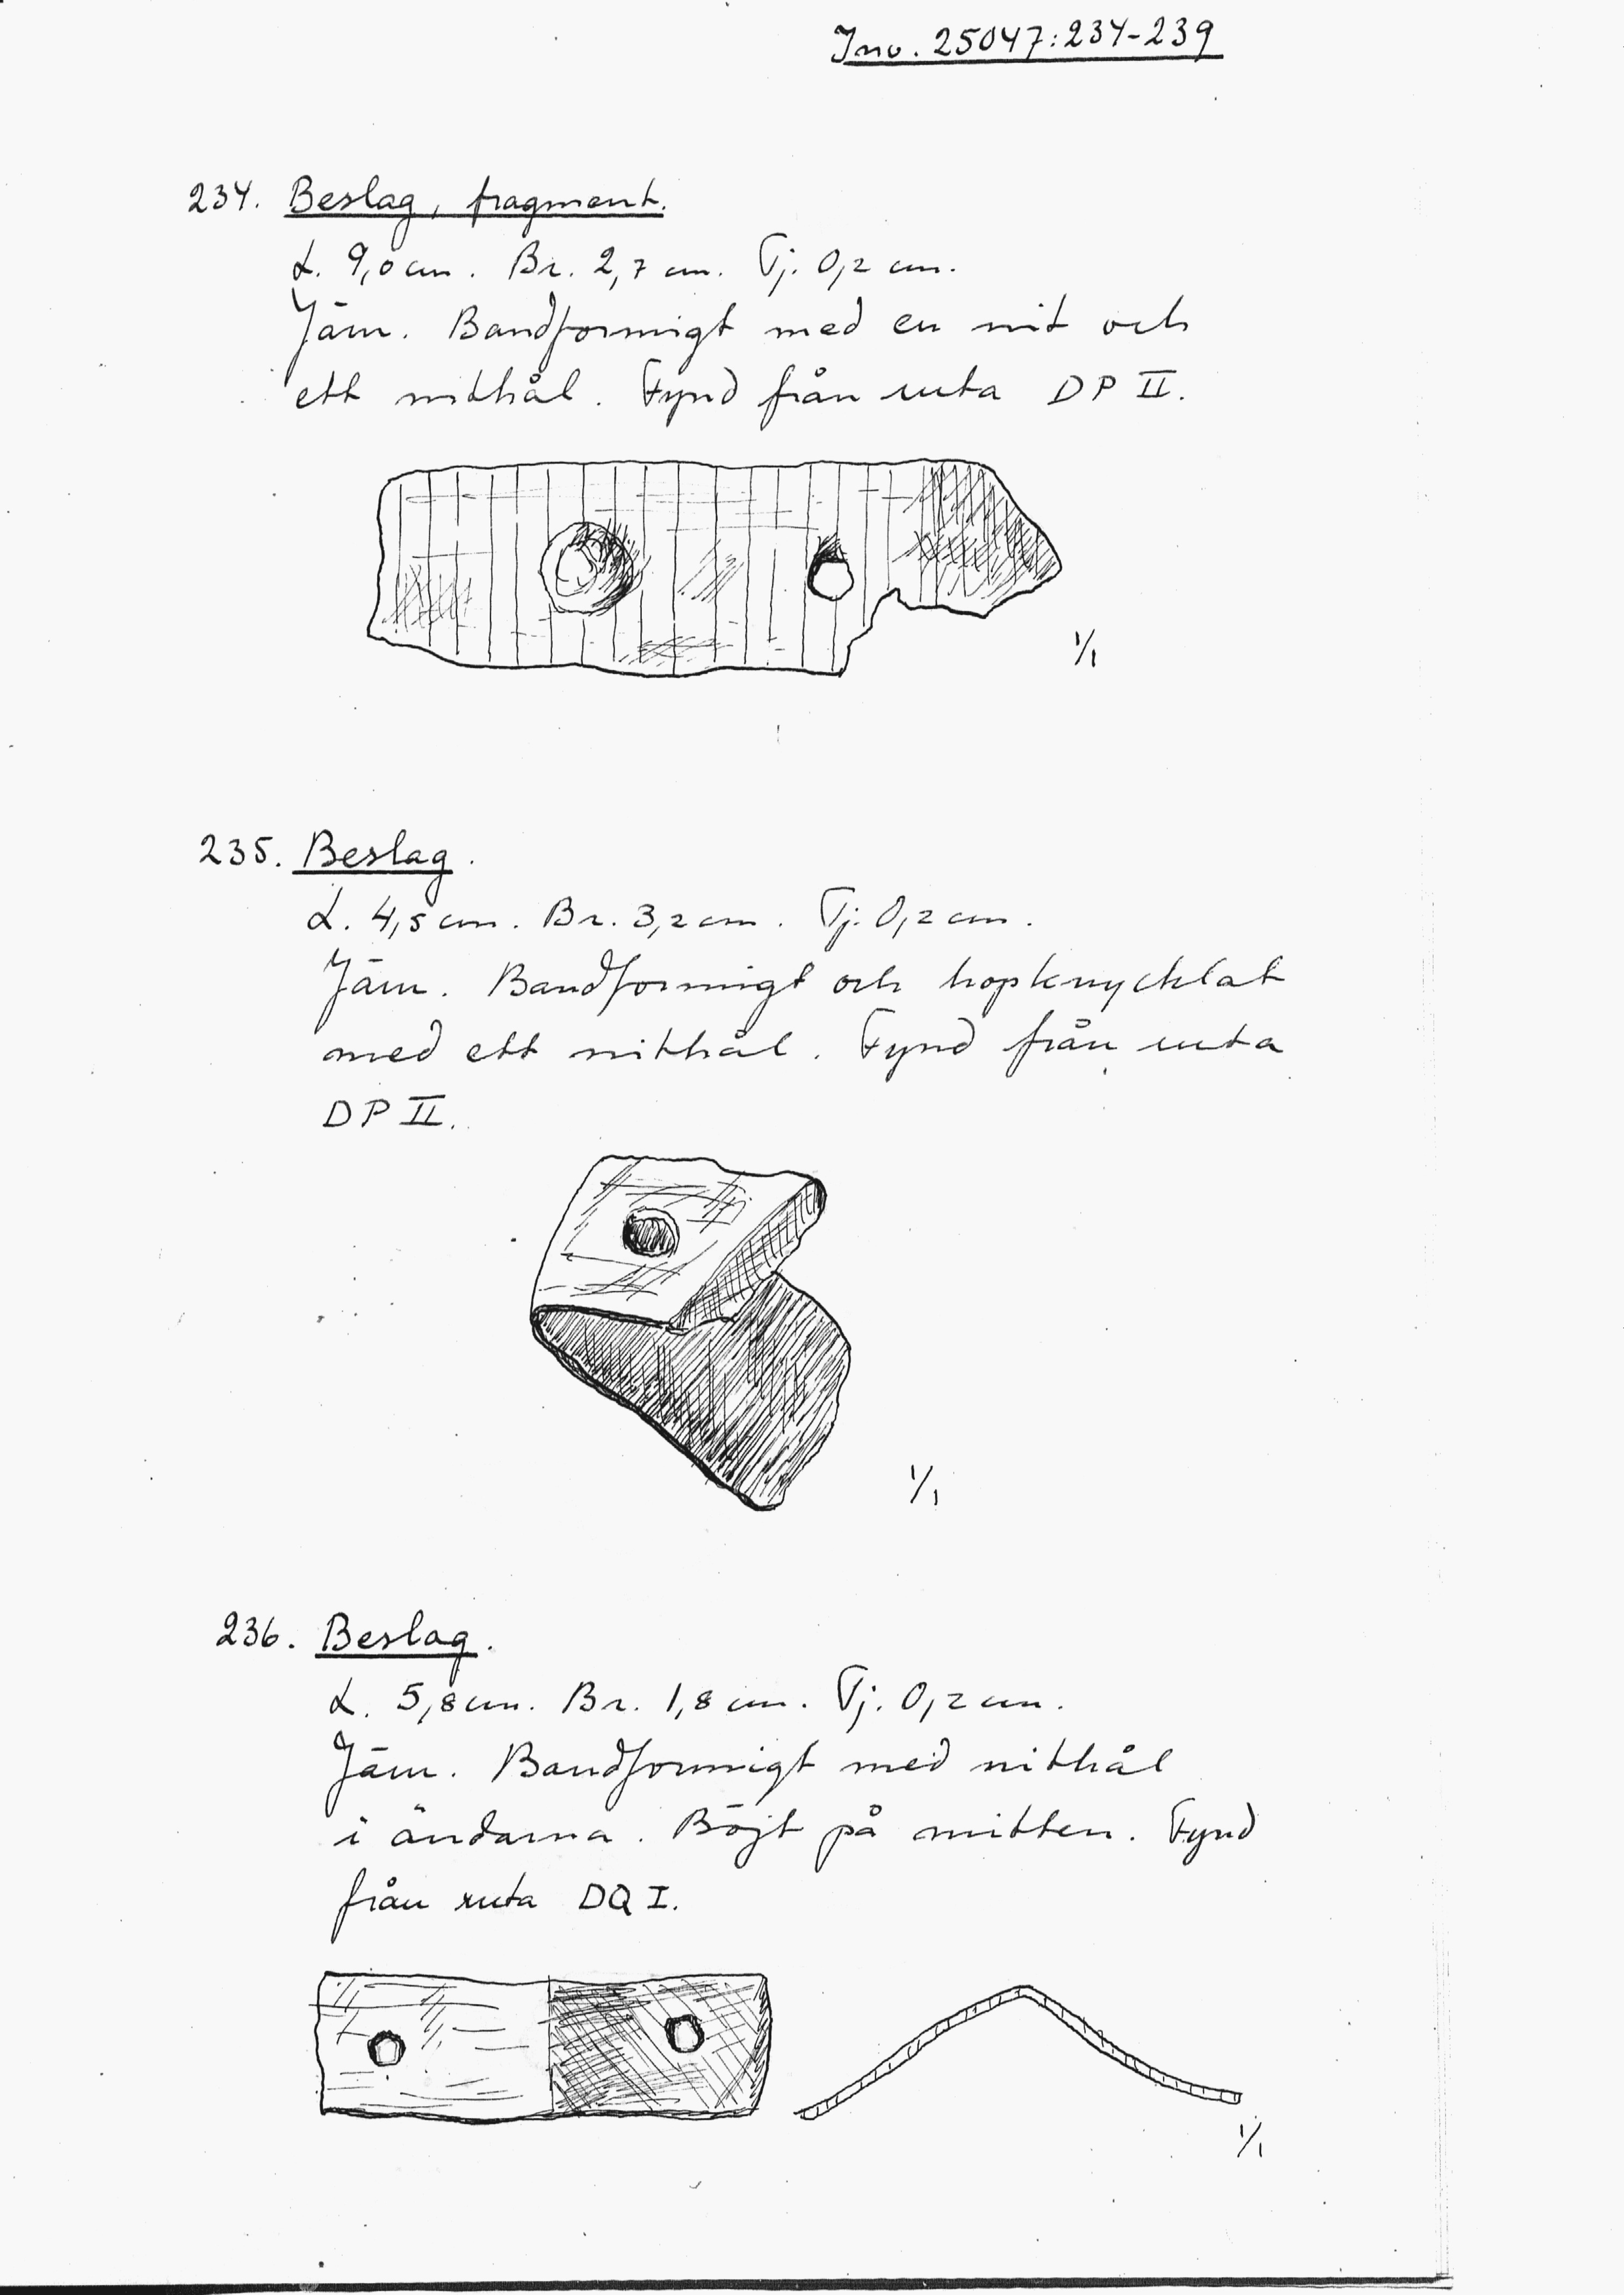 Inv. 25047:234-239
234. Beslag, fragment.
L. 9,0 cm. Br. 2,7 cm. Tj. 0,2 cm.
Järn. Bandformigt med en nit och
ett nithål. Fynd från ruta DP II.
1/1
235. Beslag.
L. 4,5 cm. Br. 3,2 cm. Tj. 0,2 cm.
Järn. Bandformigt och hopknycklat
med ett nithål. Fynd från ruta
DP II.
1/1
236. Beslag.
L. 5,8 cm. Br. 1,8 cm. Tj. 0,2 cm.
Järn. Bandformigt med nithål
i ändarna. Böjt på mitten. Fynd
från ruta DQ I.
1/1